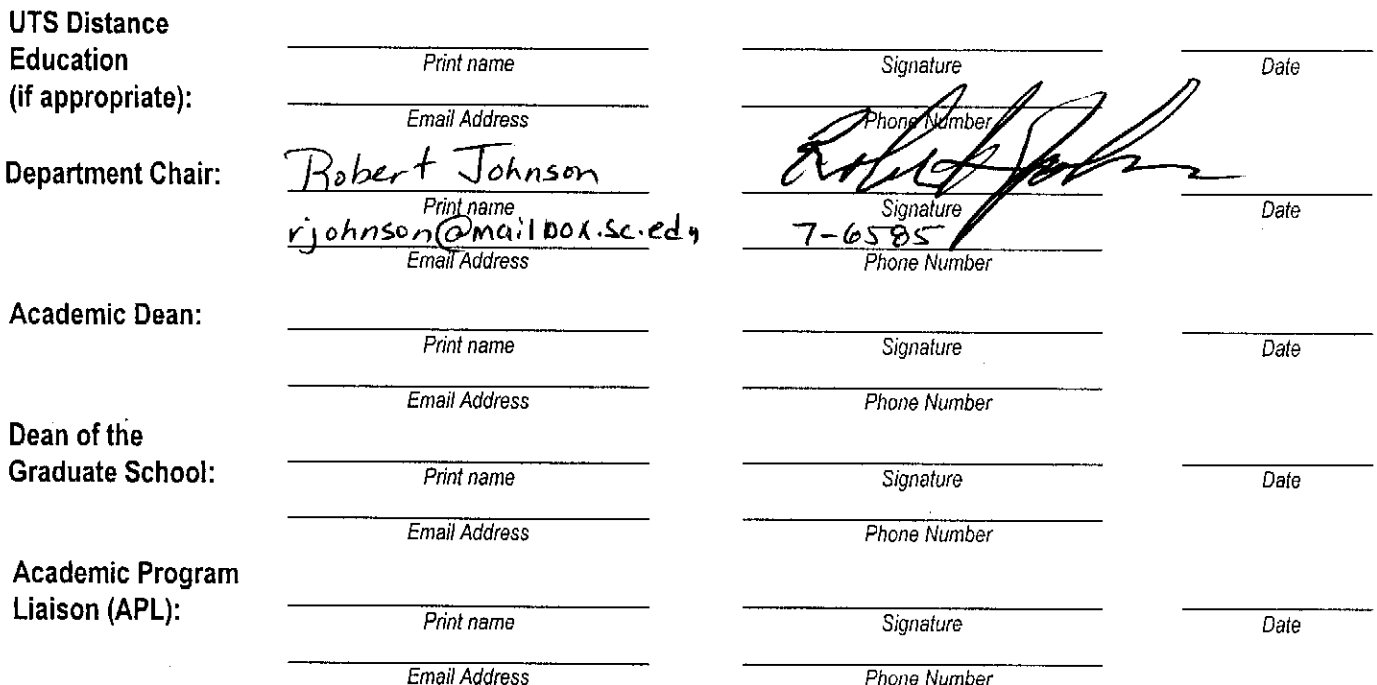 UTS Distance
Education
(if appropriate):
Print name Signature Date
Email Address Phone Number
Department Chair: Robert Johnson Robert Johnson
Print name Signature Date
rjohnson@mailbox.sc.edu 7-6585
Email Address Phone Number
Academic Dean:
Print name Signature Date
Email Address Phone Number
Dean of the
Graduate School:
Print name Signature Date
Email Address Phone Number
Academic Program
Liaison (APL):
Print name Signature Date
Email Address Phone Number